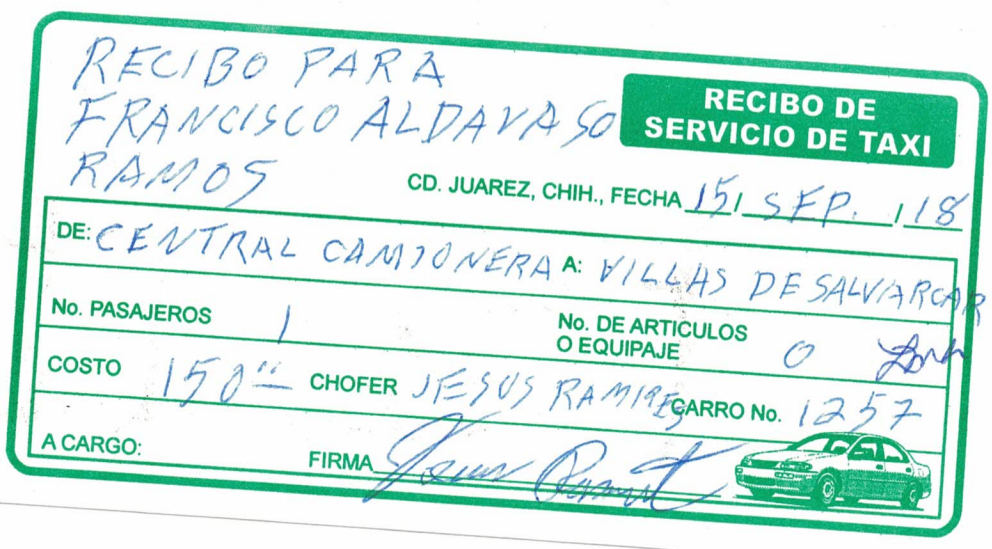 RECIBO PARA
FRANCISCO ALDAVASO
RAMOS
RECIBO DE
SERVICIO DE TAXI
CD. JUAREZ, CHIH., FECHA 15/ SEP. /18
DE: CENTRAL CAMIONERA A: VILLAS DE SALVARCAR
No. PASAJEROS 1 No. DE ARTICULOS
O EQUIPAJE 0
COSTO 150 CHOFER JESUS RAMIRES CARRO No. 1257
A CARGO: FIRMA